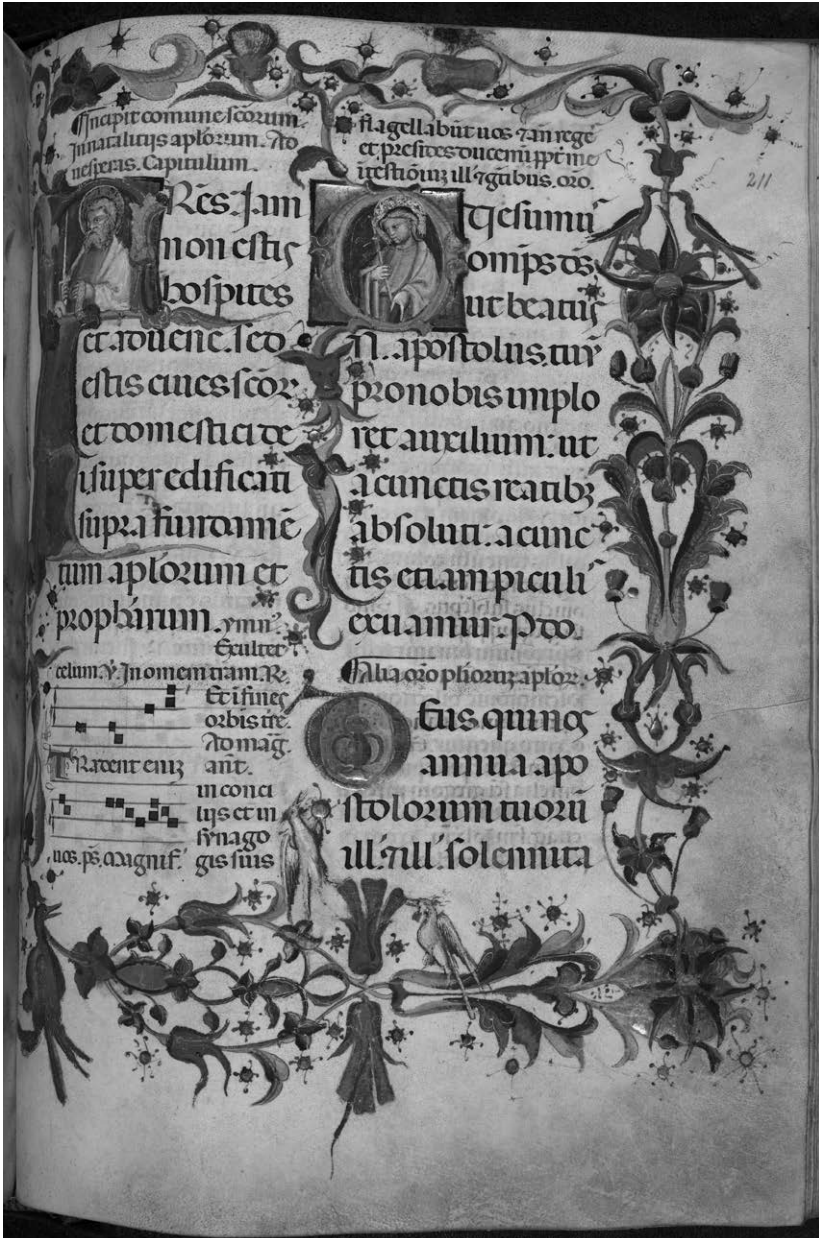 Incipit comune scorum.
In nataliciis aplorum. Ad
vesperas. Capitulum.
FRes. Jam
non estis
hospites
et aduene. sed
estis ciues scor
et domestici de
i super edificati
supra fundame
tum aplorum et
propharum. ymn.
Exultet
celum. V. In omnem terram. R.
Et i fines
orbis tre.
Ad mag.
Tradent eniz ant.
in conci
liis et in
synago
uos. ps. Magnif. gis suis
flagellabut uos 7 an rege
et presides ducemi ppt me
i testioniuz ill 7 getibus. oro.
Quesumu
omps ds
ut beatus
N. apostolus tuus
pro nobis implo
ret auxilium: ut
a cunctis reatibz
absoluti: a cunc
tis etiam piculis
exuamur. P do.
Alia oro pliorum aplor.
Deus qui nos
annua apo
stolorum tuoru
ill. 7 ill. solennita
211